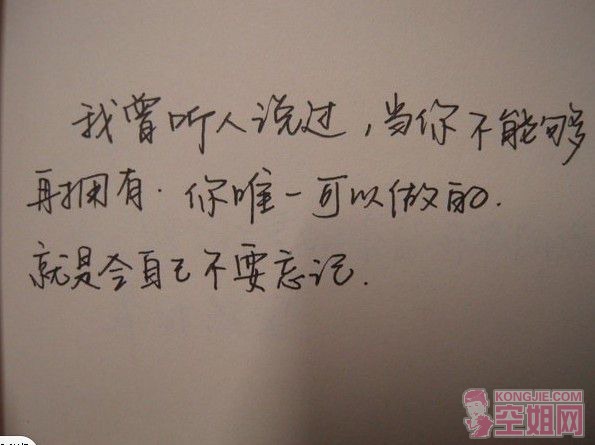 我曾听人说过,当你不能够
再拥有.你唯一可以做的.
就是令自己不要忘记.
KONGJIE.COM
空姐网